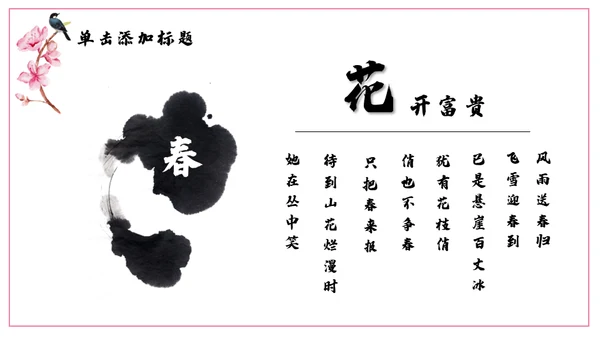 单击添加标题
花开富貴
春
风雨送春归
飞雪迎春到
已是悬崖百丈冰
犹有花枝俏
俏也不争春
只把春来报
待到山花烂漫时
她在丛中笑